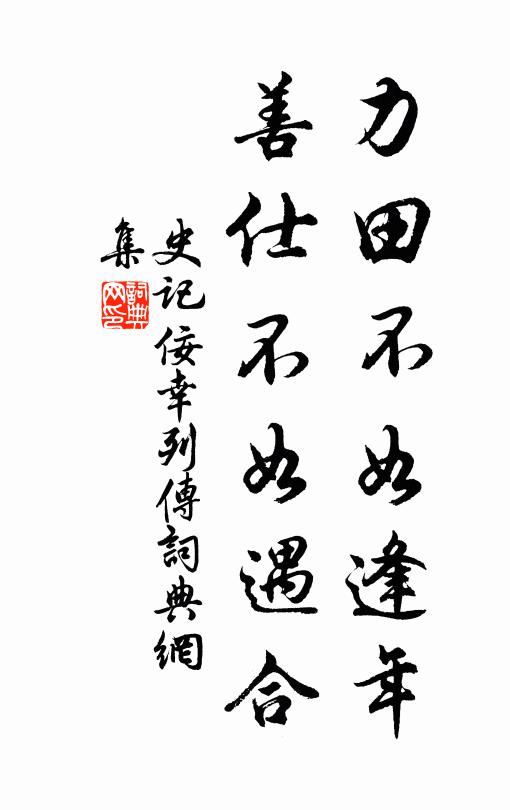 力田不如逢年
善仕不如遇合
史记佞幸列傳詞典網
集
詞典
网印